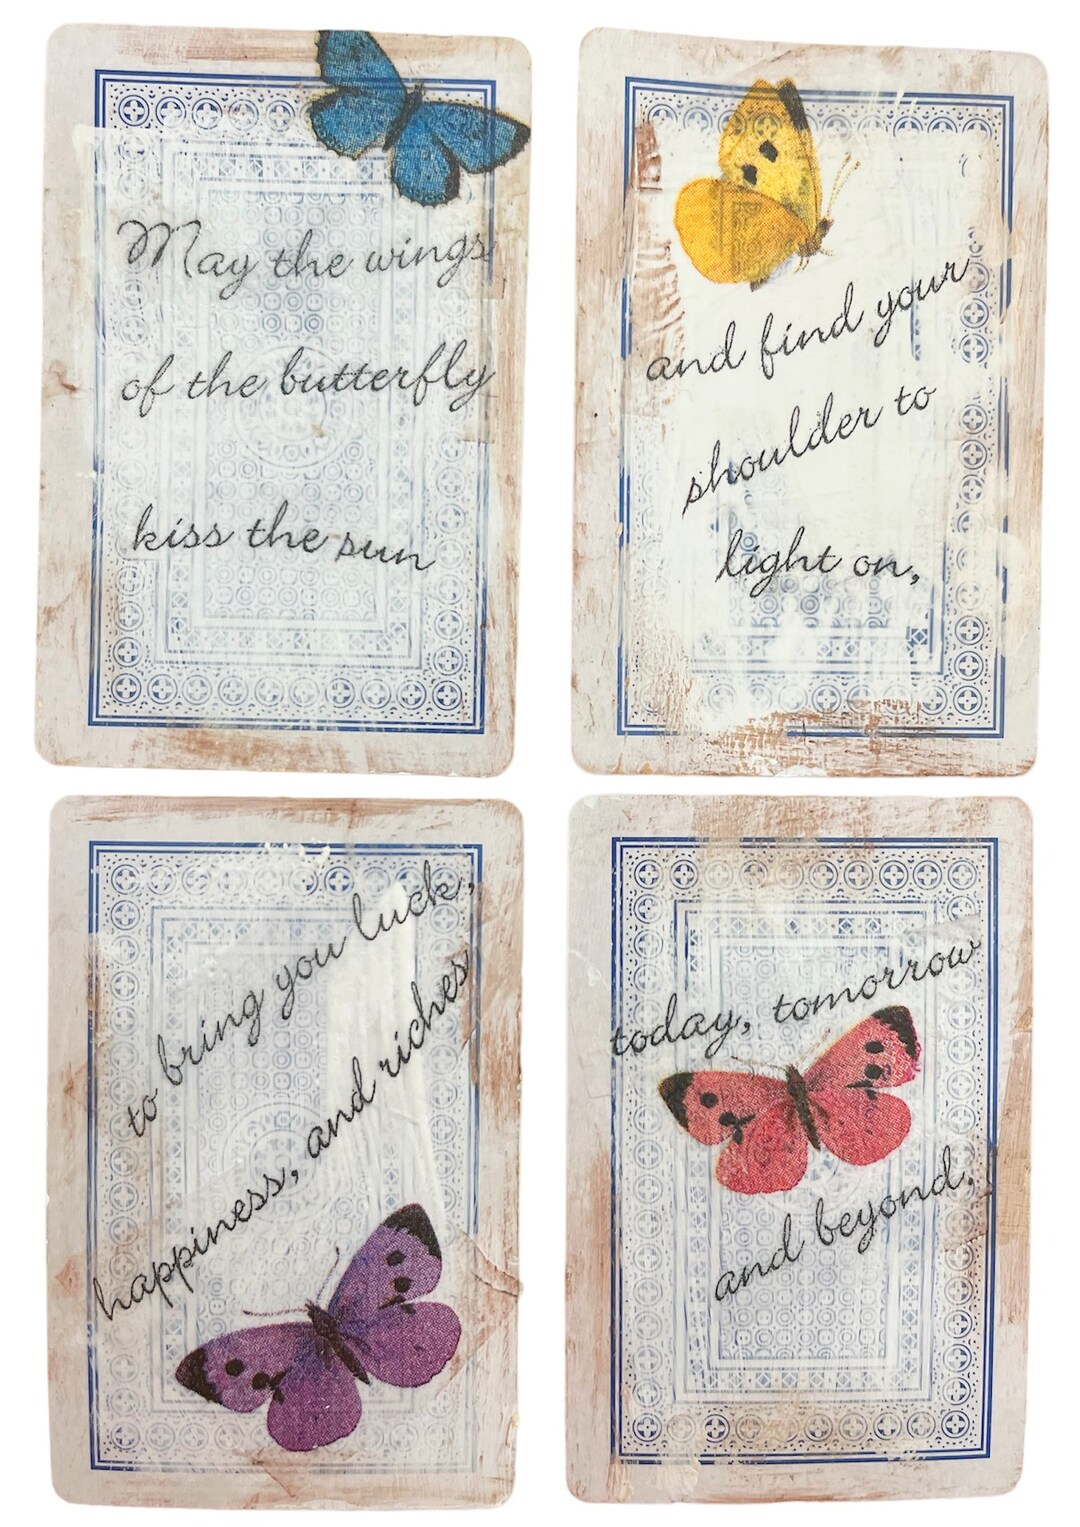 May the wings
of the butterfly
kiss the sun
and find your
shoulder to
light on,
to bring you luck,
happiness, and riches
today, tomorrow
and beyond.